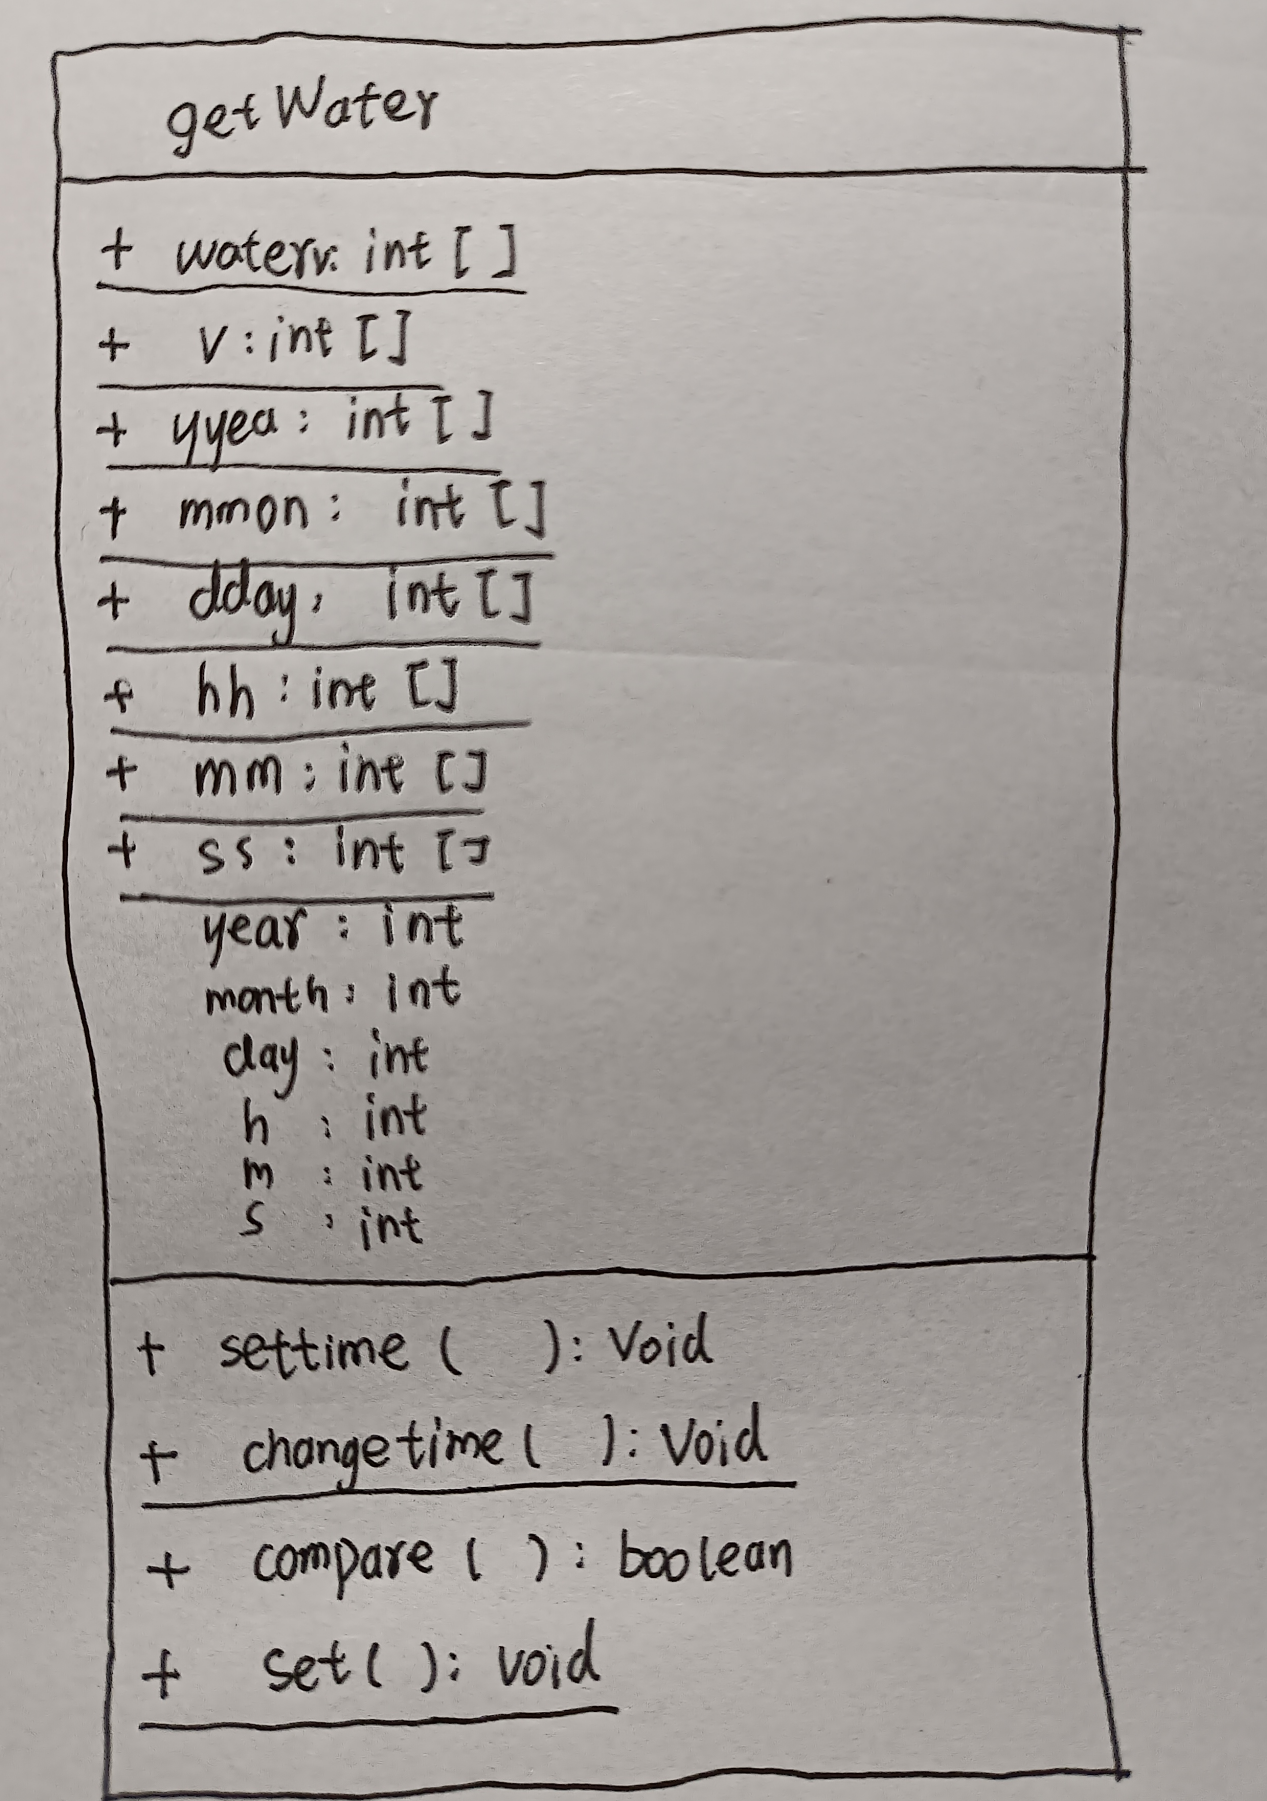 getWater
+ waterv: int [ ]
+ v : int [ ]
+ yyea : int [ ]
+ mmon : int [ ]
+ dday : int [ ]
+ hh : int [ ]
+ mm : int [ ]
+ ss : int [ ]
year : int
month : int
day : int
h : int
m : int
s : int
+ settime ( ) : Void
+ changetime ( ) : Void
+ compare ( ) : boolean
+ set ( ) : void